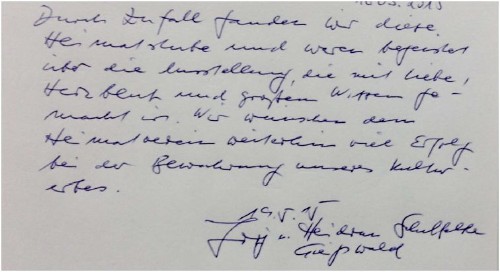 Durch Zufall fanden wir diese
Heimatstube und waren begeistert
über die Ausstellung, die mit Liebe,
Herzblut und großem Wissen ge-
macht ist. Wir wünschen dem
Heimatverein weiterhin viel Erfolg
bei der Bewahrung unseres Kultur-
erbes.
19.5.15
u. Heidrun